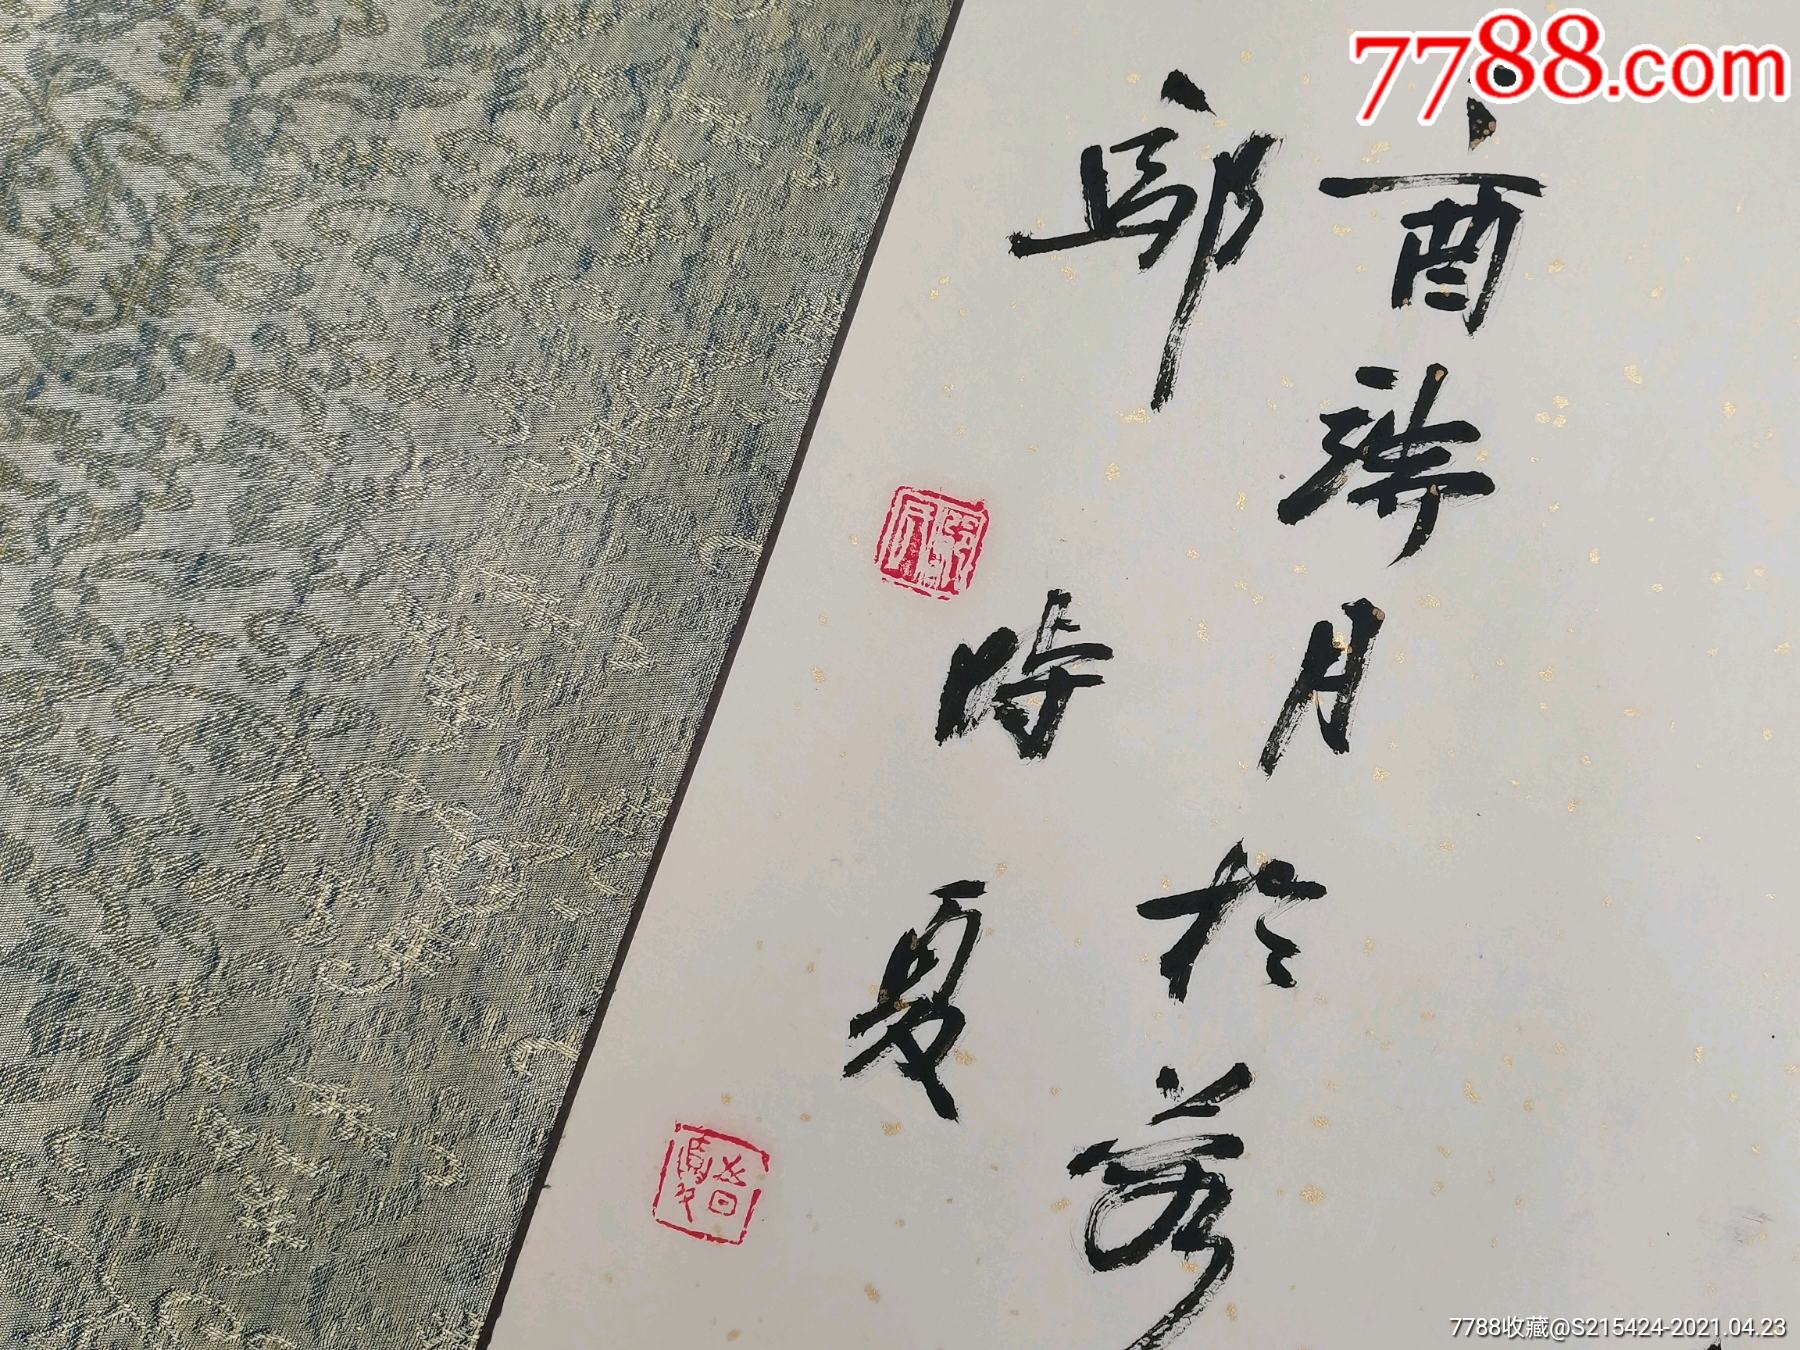 7788.com
酉端月於
鄔
時夏
7788收藏@S215424-2021.04.23